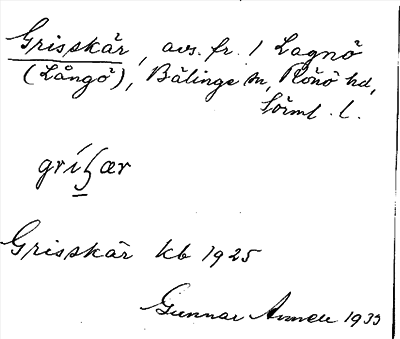 Grisskär, avs. fr. 1 Lagnö
(Långö), Bälinge sn, Rönö hd,
Sörml. l.
gríʂær
Grisskär kb 1925
Gunnar Annell 1933